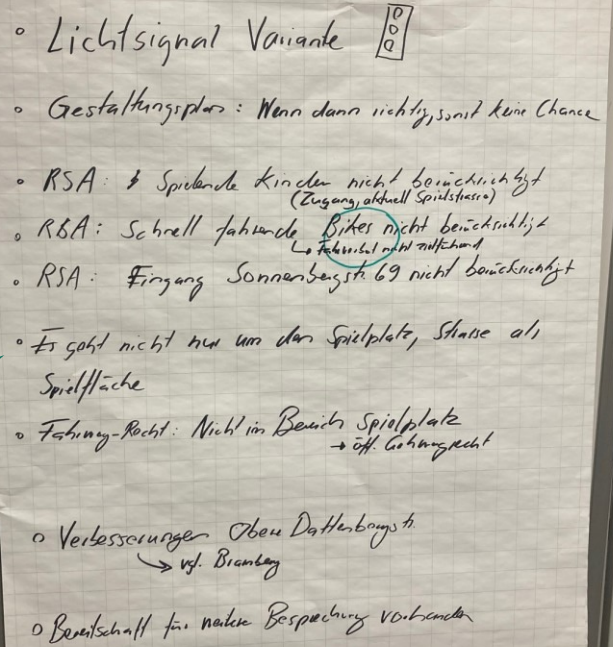 Lichtsignal Variante
Gestaltungsplan: Wenn dann richtig, sonst keine Chance
RSA: Spielende Kinder nicht berücksichtigt
(Zugang, aktuell Spielstrasse)
RSA: Schnell fahrende Bikes nicht berücksichtigt
↳ Fahrverbot nicht zielführend
RSA: Eingang Sonnenbergstr. 69 nicht berücksichtigt
Es geht nicht nur um den Spielplatz, Strasse als
Spielfläche
Fahrweg-Recht: Nicht im Bereich Spielplatz
→ öff. Gehwegrecht
Verbesserungen Obere Dattenbergstr.
↳ vgl. Bramberg
Bereitschaft für weitere Besprechung vorhanden